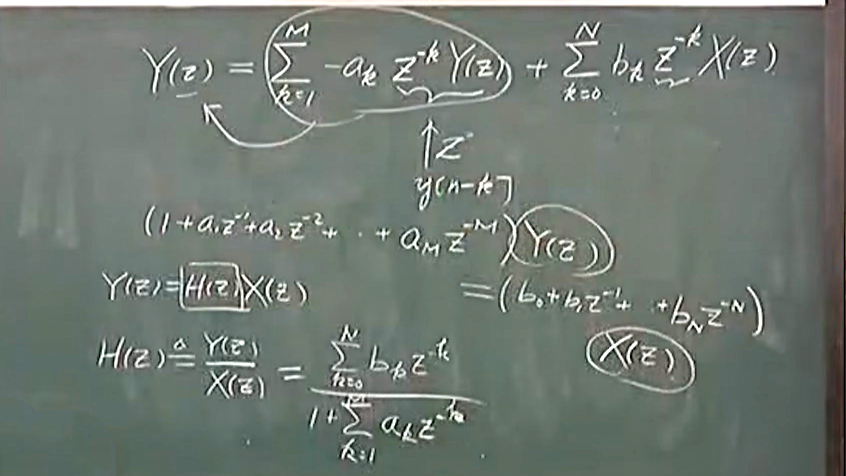 Y(z) = ∑_{k=1}^{M} -a_k z^{-k} Y(z) + ∑_{k=0}^{N} b_k z^{-k} X(z)
↑ Z
y[n-k]
(1 + a_1 z^{-1} + a_2 z^{-2} + · · + a_M z^{-M}) Y(z)
= (b_0 + b_1 z^{-1} + · · + b_N z^{-N}) X(z)
Y(z) = H(z) X(z)
H(z) ≜ Y(z)/X(z) = ∑_{k=0}^{N} b_k z^{-k} / 1 + ∑_{k=1}^{M} a_k z^{-k}